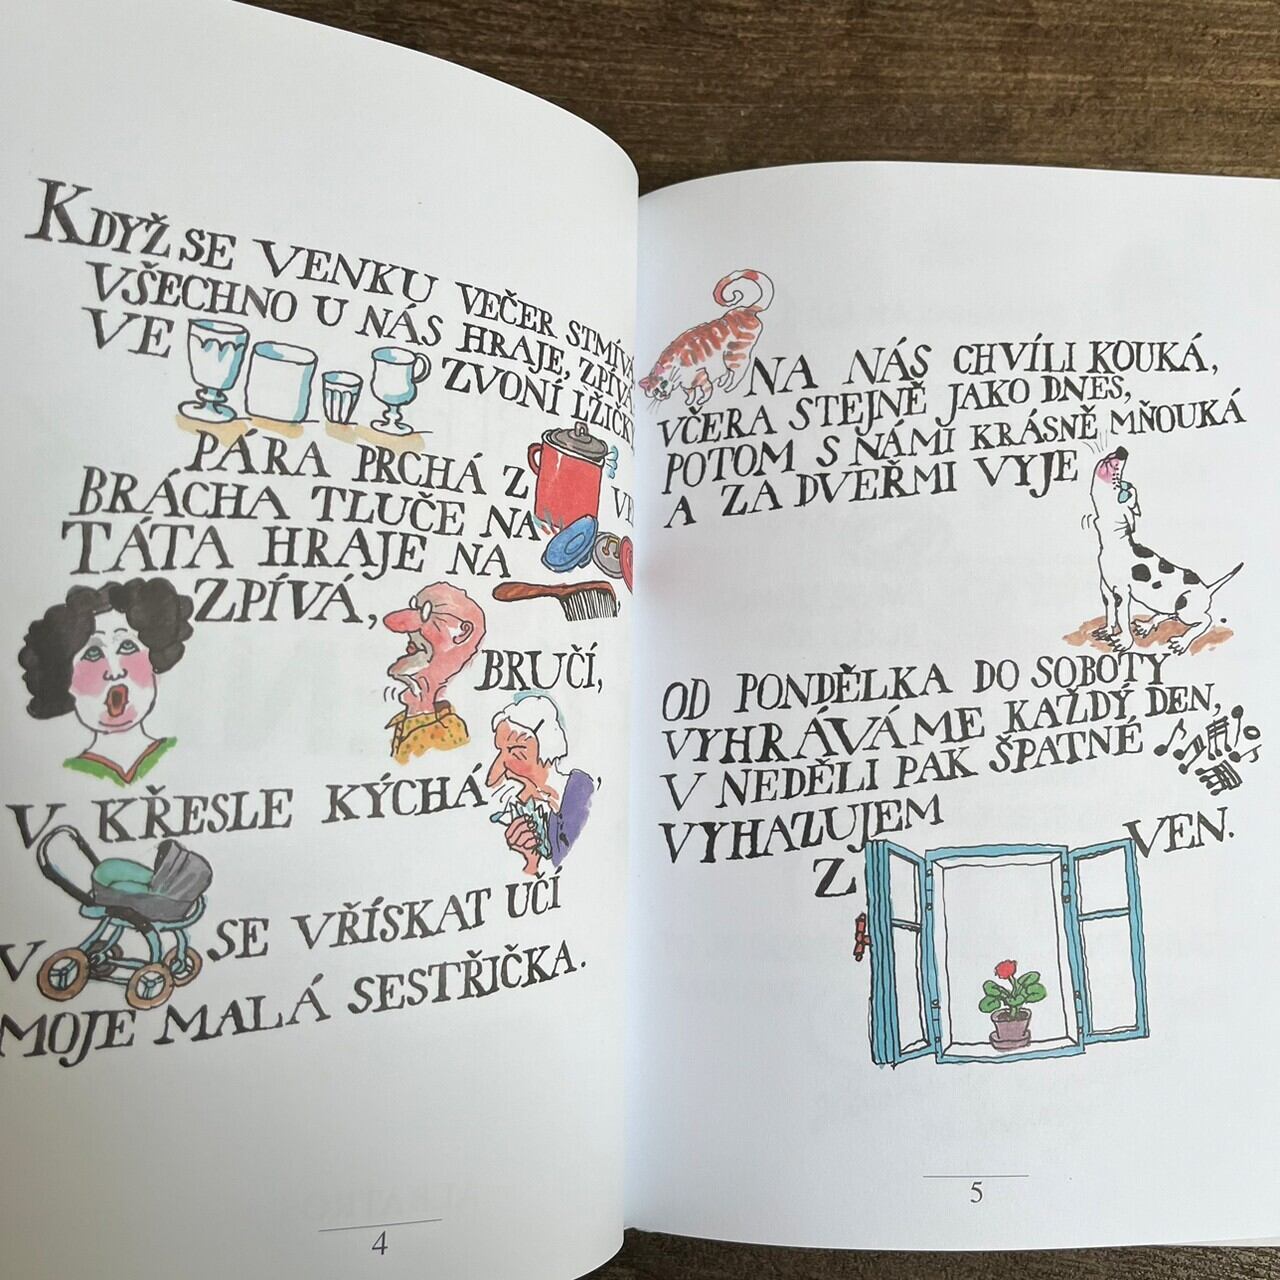 KDYŽ SE VENKU VEČER STMÍVÁ
VŠECHNO U NÁS HRAJE, ZPÍVÁ
VE ZVONÍ LŽIČKY
PÁRA PRCHÁ Z
BRÁCHA TLUČE NA
TÁTA HRAJE NA
ZPÍVÁ,
BRUČÍ,
V KŘESLE KÝCHÁ ,
V SE VŘÍSKAT UČÍ
MOJE MALÁ SESTŘIČKA.
4
NA NÁS CHVÍLI KOUKÁ,
VČERA STEJNĚ JAKO DNES,
POTOM S NÁMI KRÁSNĚ MŇOUKÁ
A ZA DVEŘMI VYJE .
OD PONDĚLKA DO SOBOTY
VYHRÁVÁME KAŽDÝ DEN,
V NEDĚLI PAK ŠPATNÉ
VYHAZUJEM
Z VEN.
5